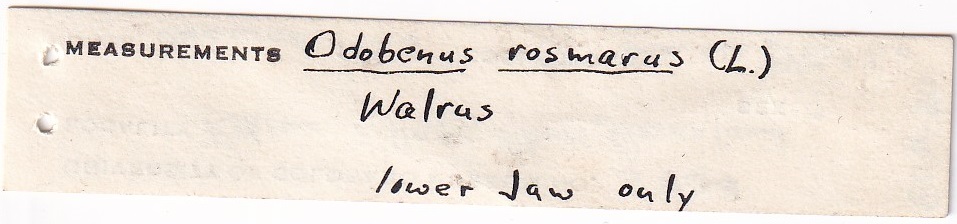 MEASUREMENTS Odobenus rosmarus (L.)
Walrus
lower Jaw only